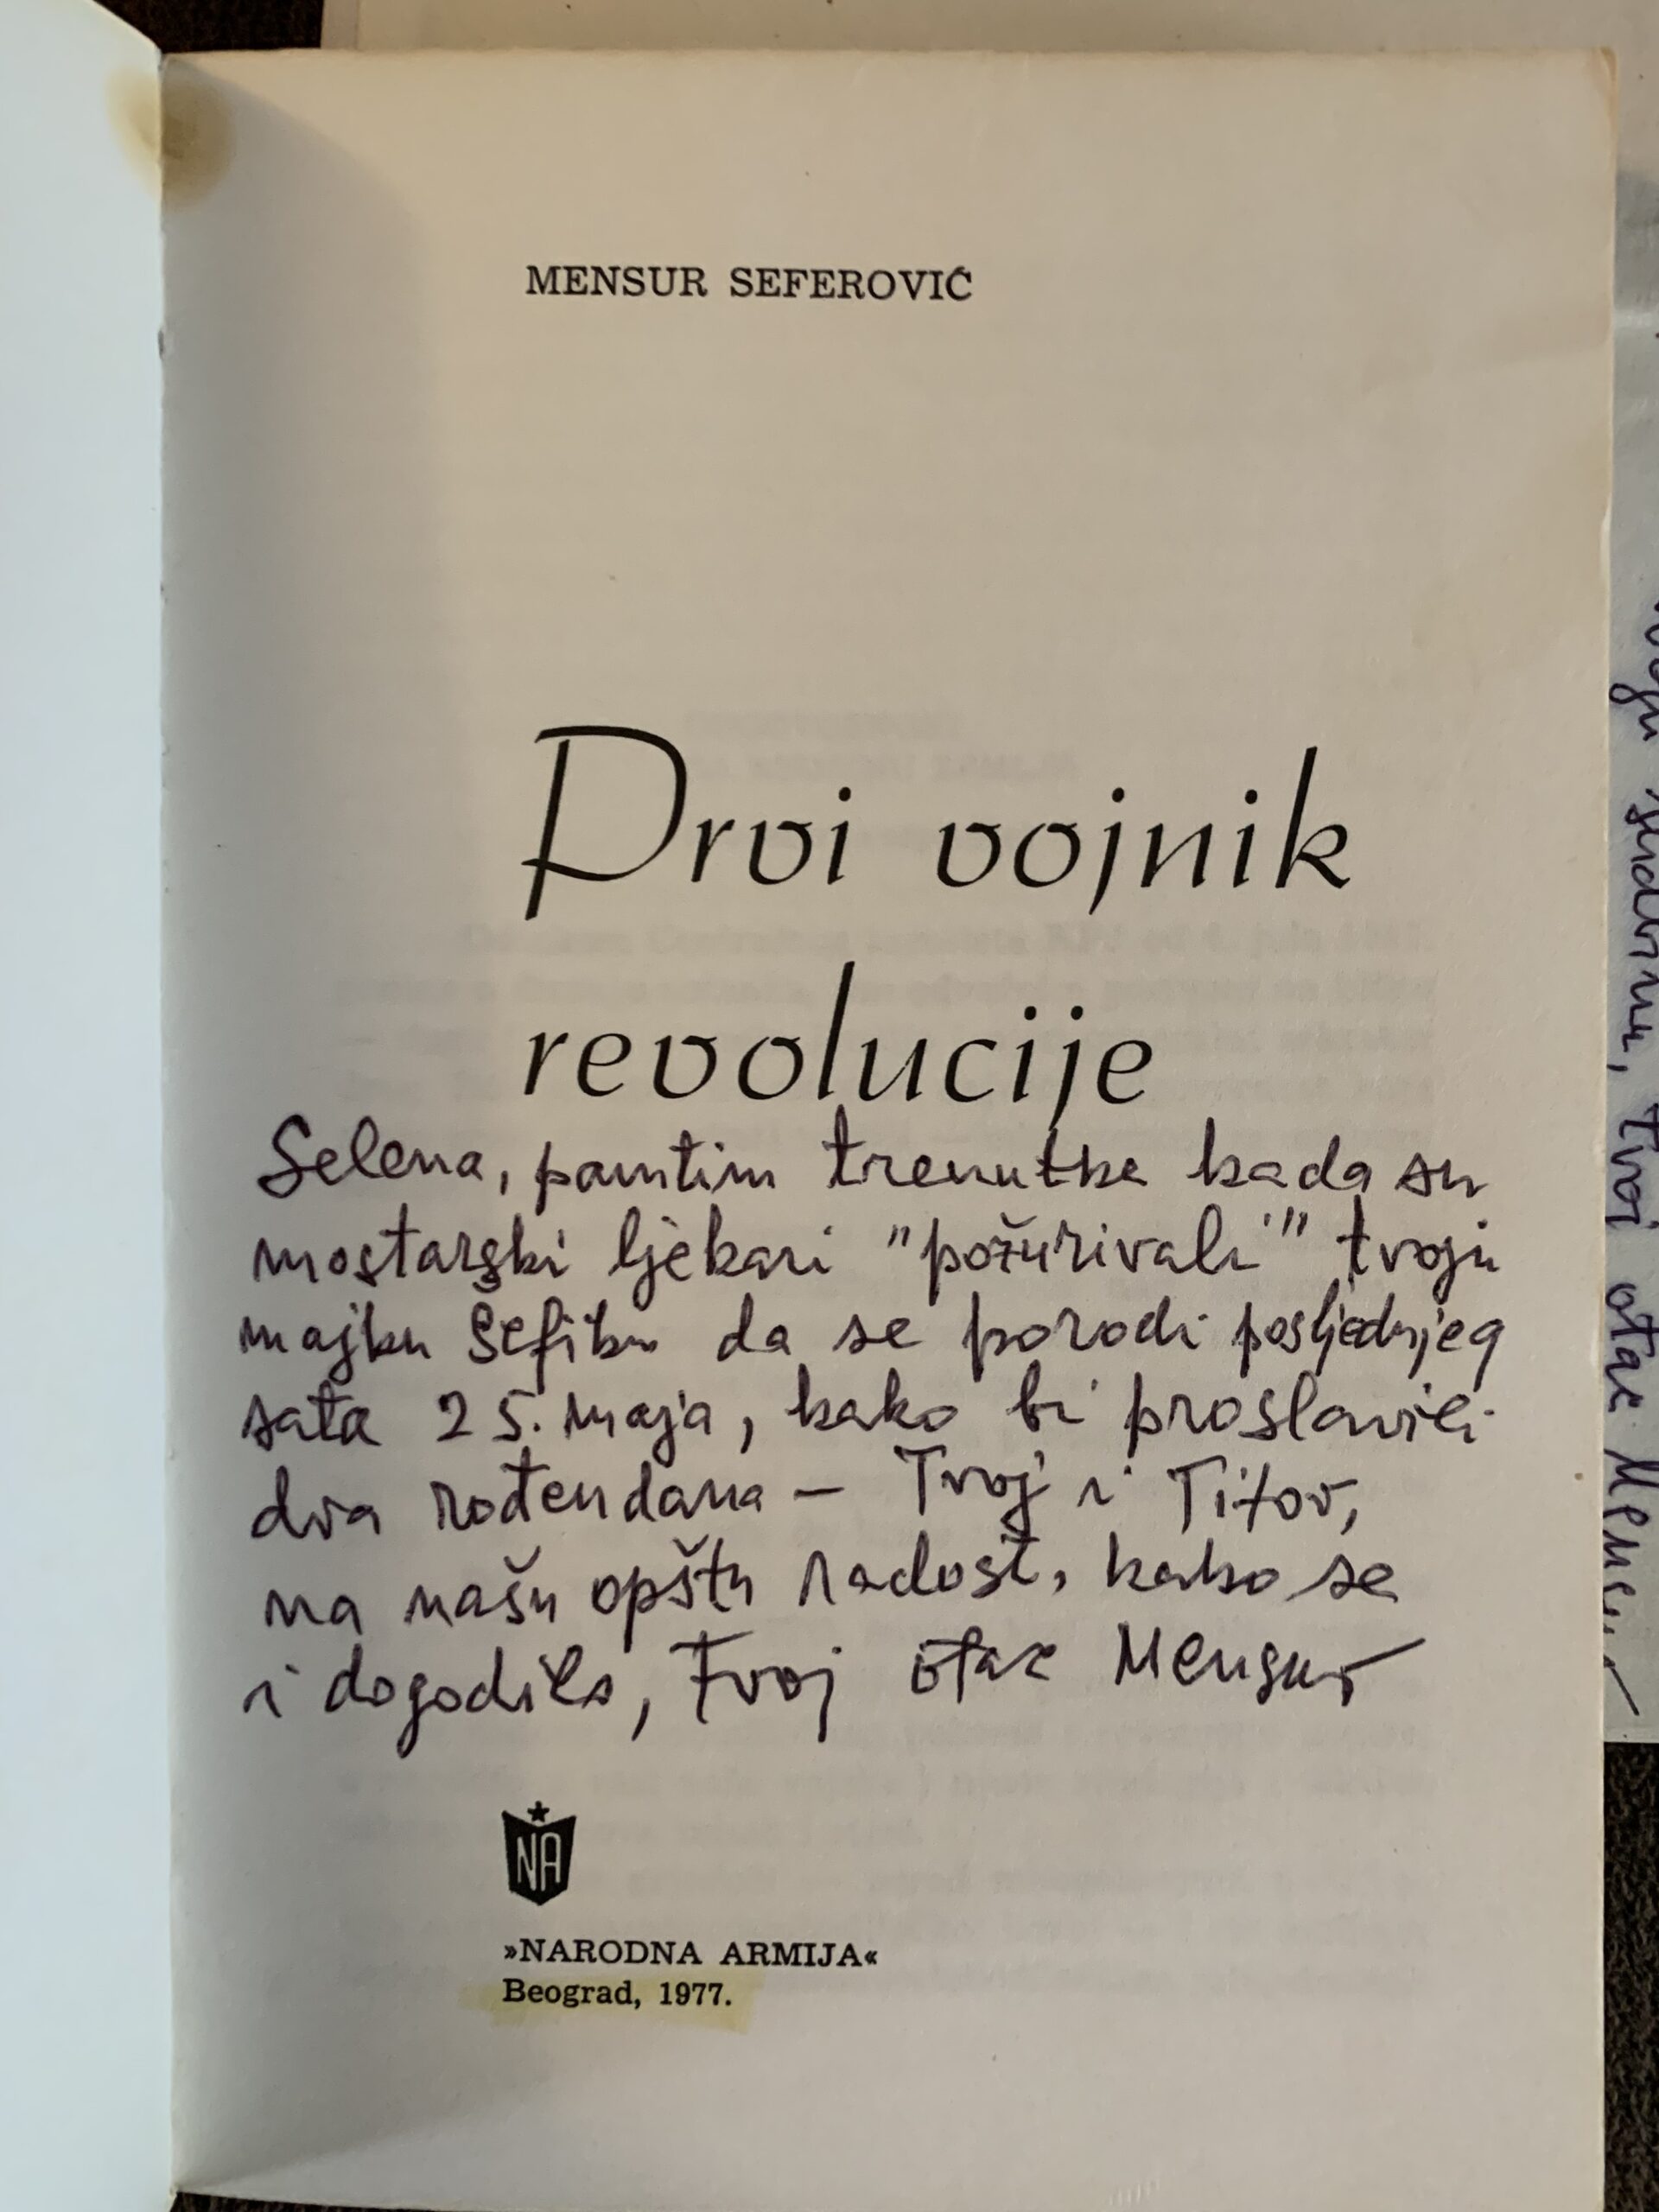 MENSUR SEFEROVIĆ
Prvi vojnik
revolucije
Selena, pamtim trenutke kada su
mostarski ljekari "požurivali" tvoju
majku Šefiku da se porodi posljednjeg
sata 25. maja, kako bi proslavili
dva rođendana – Tvoj i Titov,
na našu opštu radost, kako se
i dogodilo, Tvoj otac Mensur
NA
»NARODNA ARMIJA«
Beograd, 1977.
sudbinu, tvoj otac Mensur